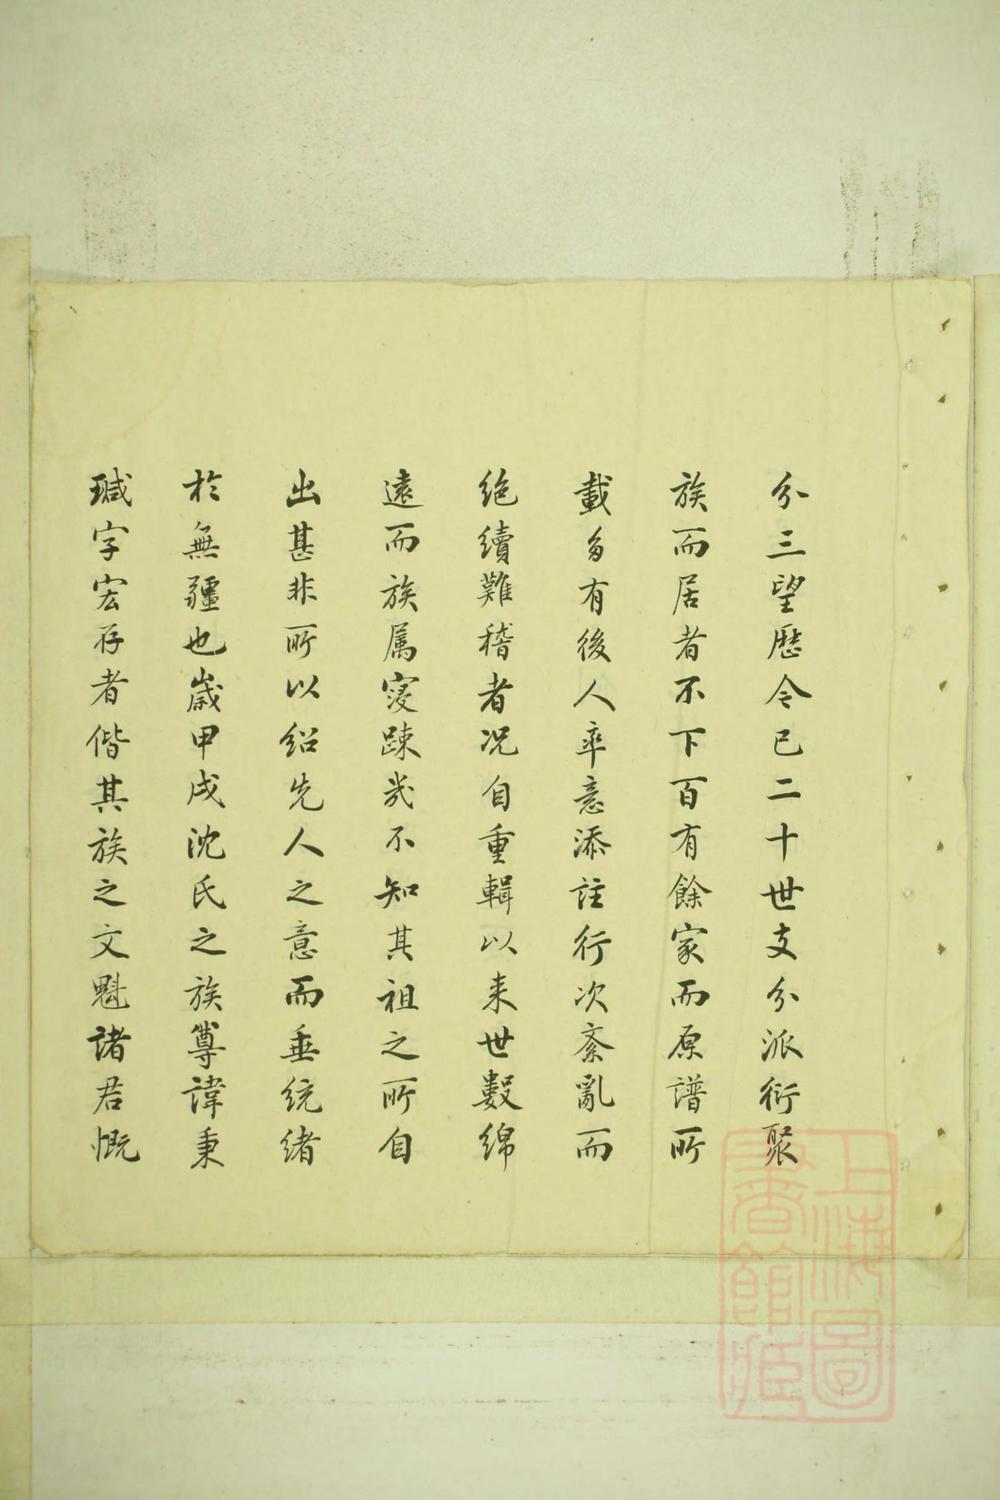 分三望歷今已二十世支分派衍聚
族而居者不下百有餘家而原譜所
載多有後人率意添註行次紊亂而
絶續難稽者况自重輯以来世數綿
遠而族属寖踈幾不知其祖之所自
出甚非所以紹先人之意而垂统绪
於無疆也歲甲戌沈氏之族尊諱秉
瑊字宏存者偕其族之文魁諸君慨
上海圖
書館藏